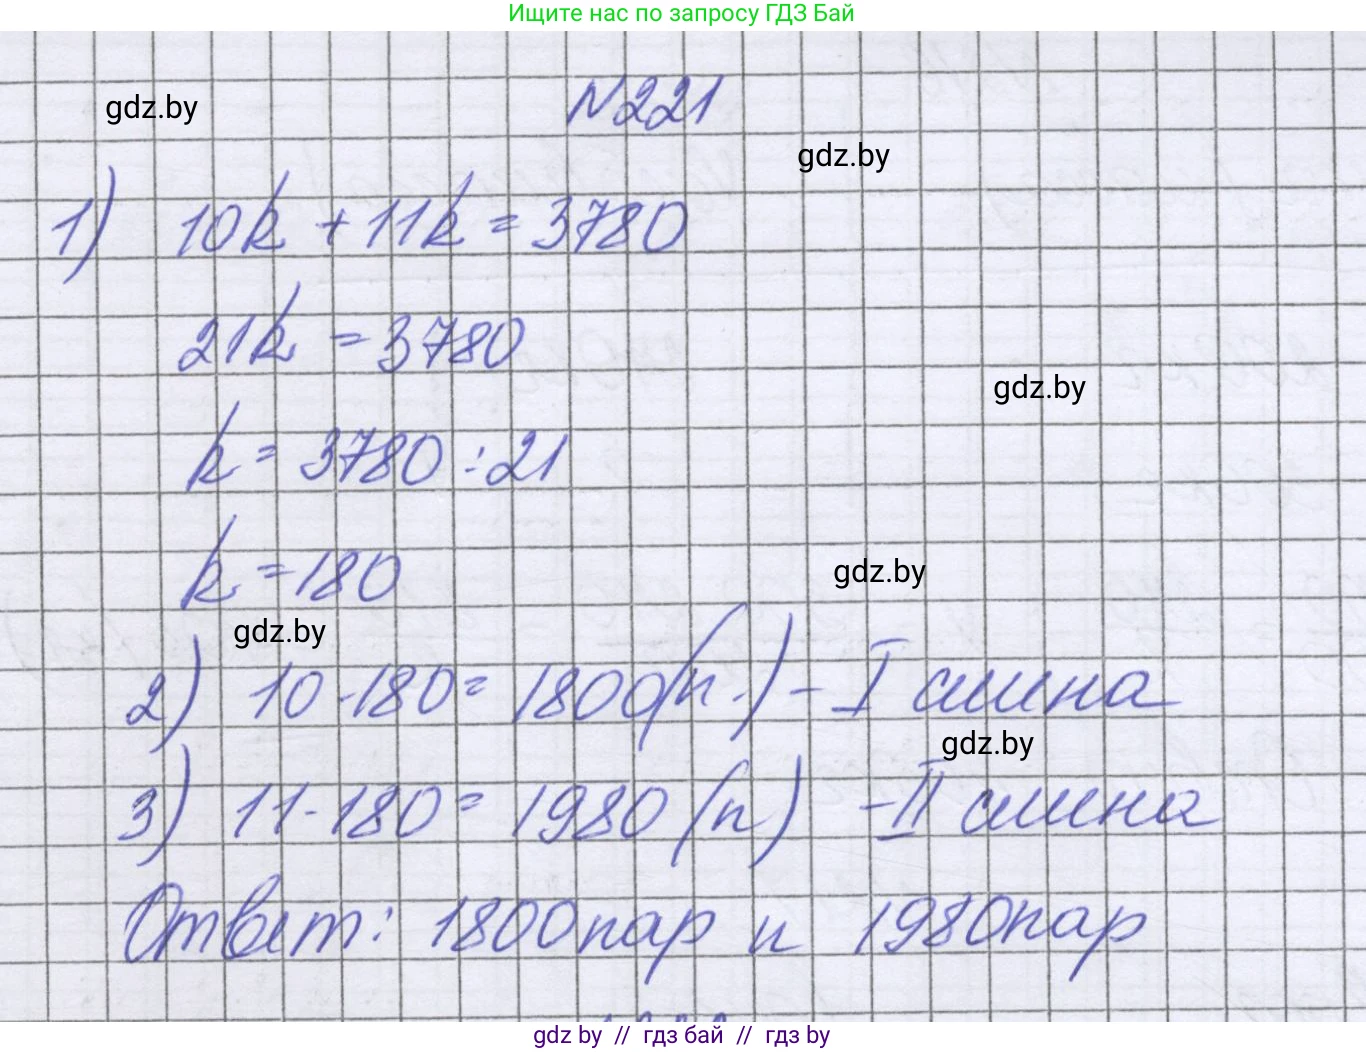 Ищите нас по запросу ГДЗ Бай
N221
gdz.by
gdz.by
1) 10k + 11k = 3780
21k = 3780
gdz.by
k = 3780 : 21
k = 180
gdz.by
gdz.by
2) 10·180 = 1800 (п.) – I смена
gdz.by
3) 11·180 = 1980 (п) – II смена
Ответ: 1800 пар и 1980 пар
gdz.by // гдз бай // гдз by